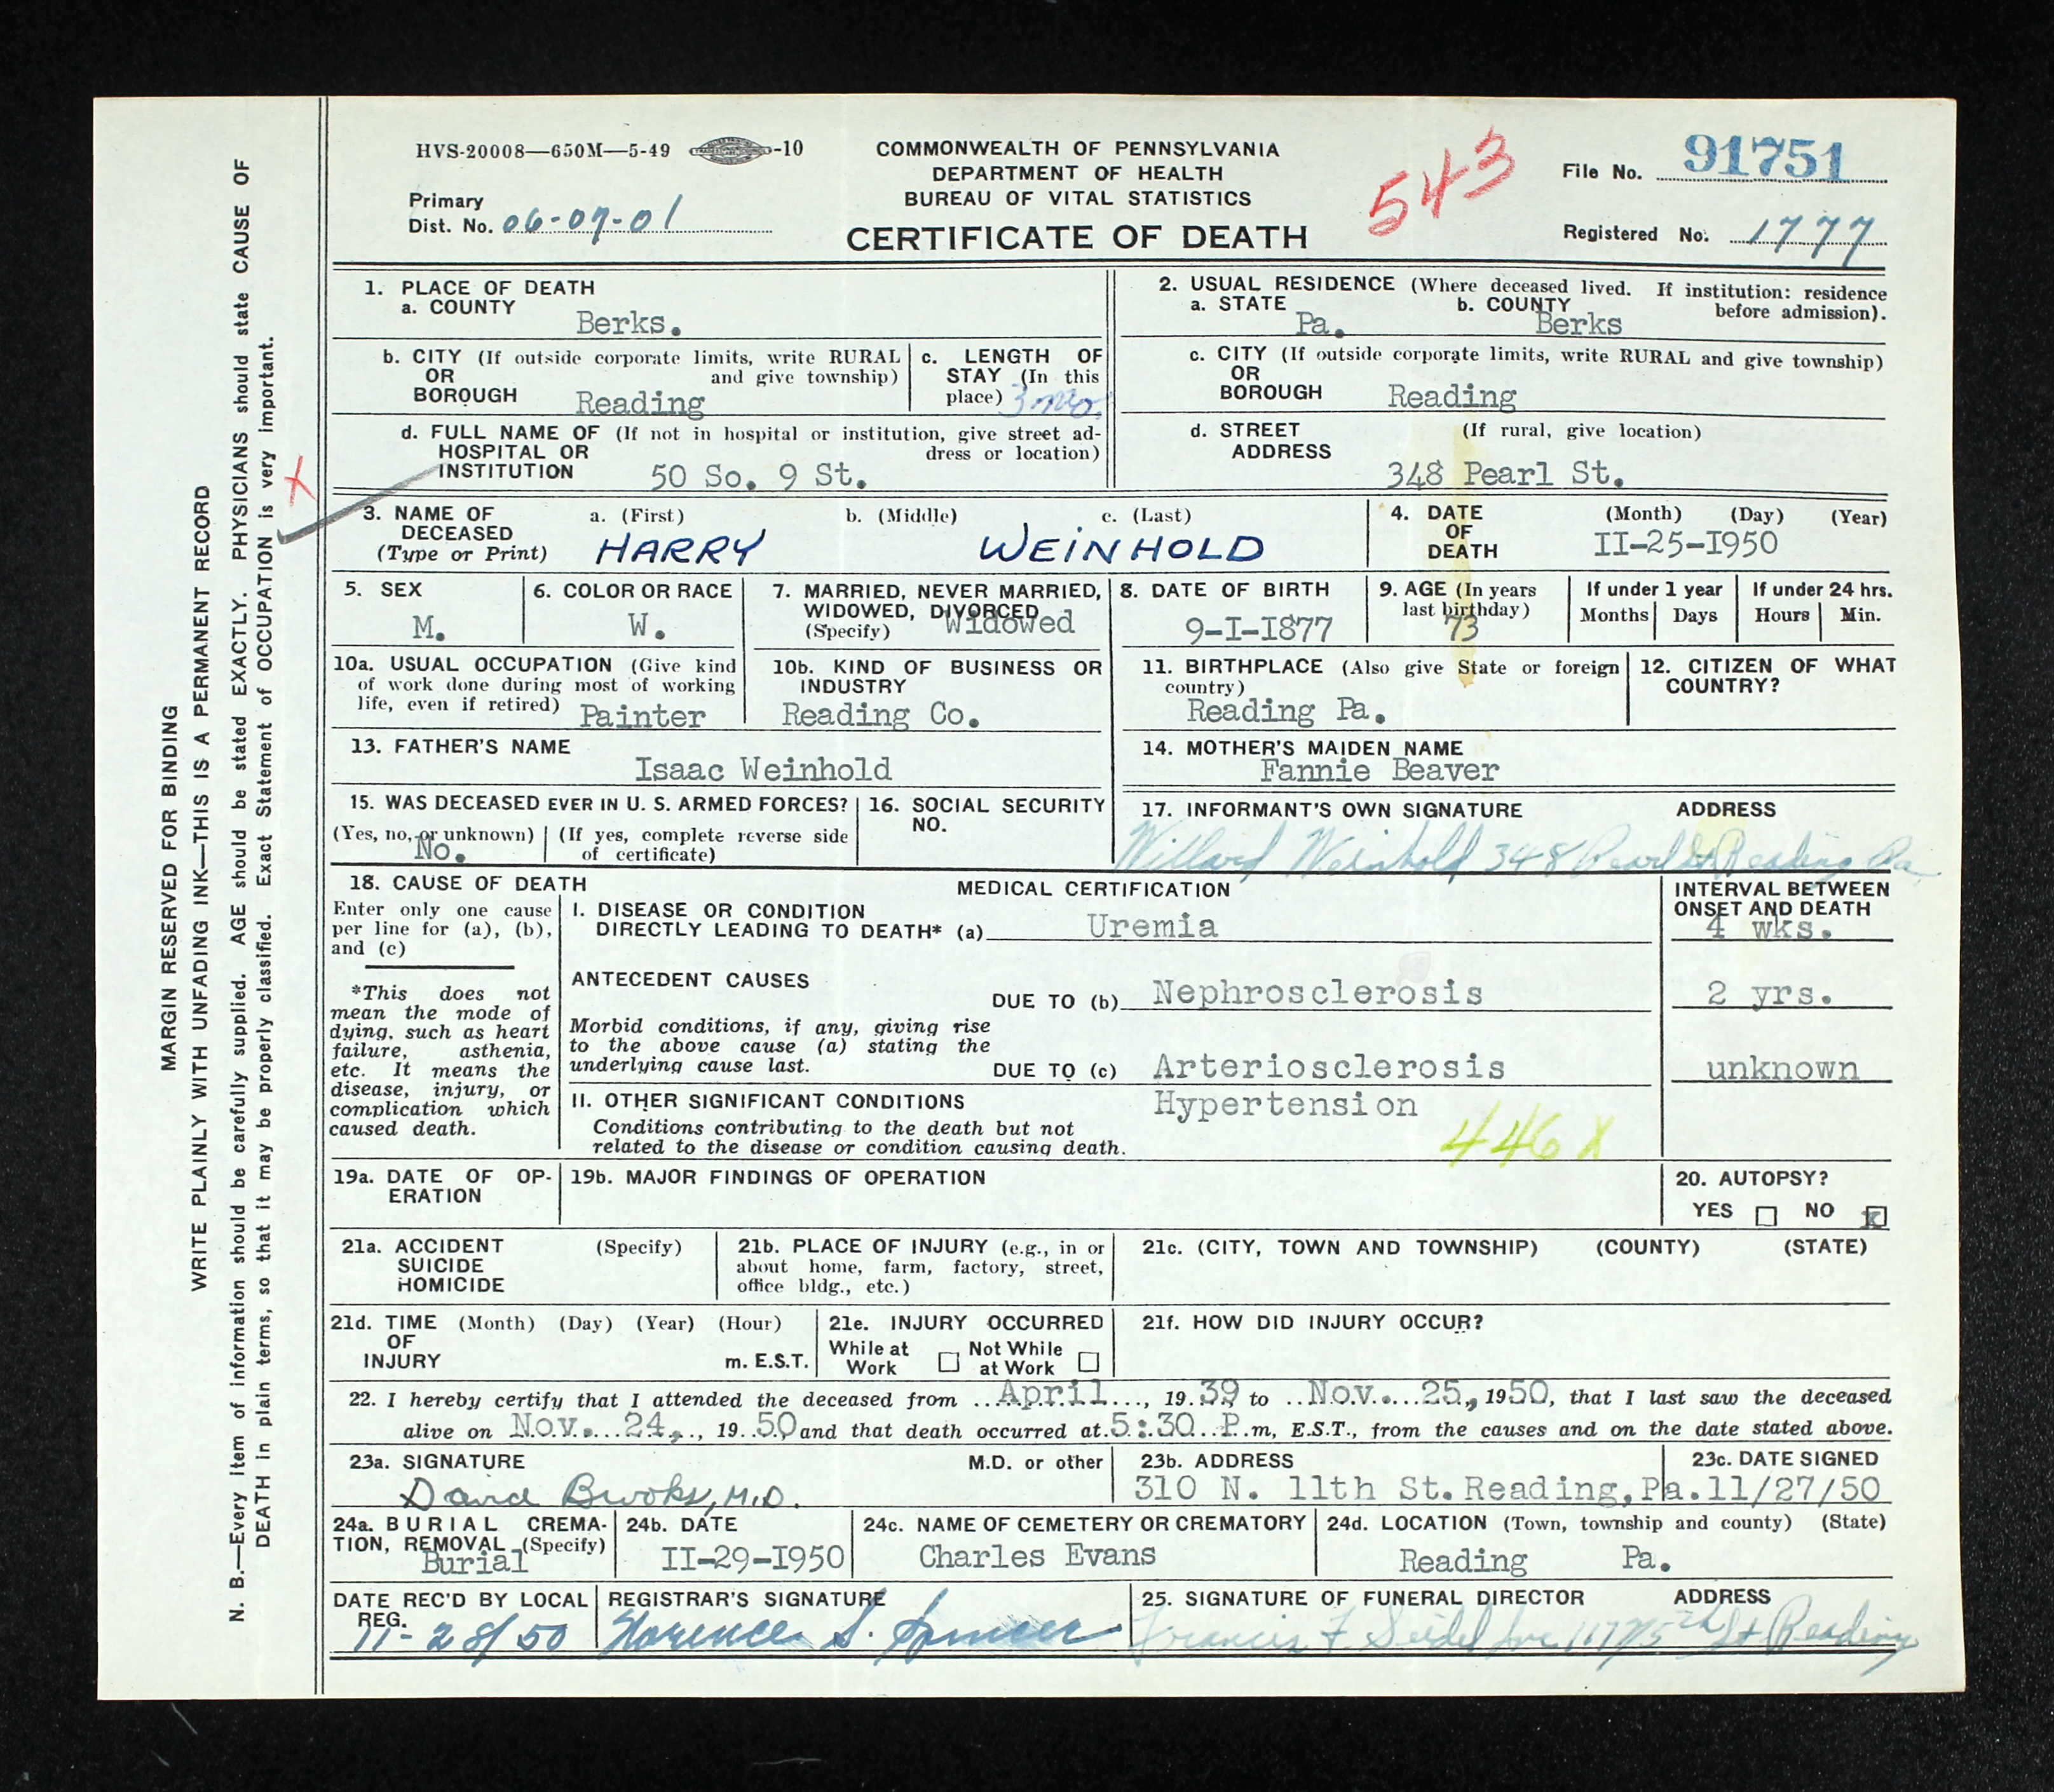 HVS-20008—650M—5-49 -10
COMMONWEALTH OF PENNSYLVANIA
DEPARTMENT OF HEALTH
BUREAU OF VITAL STATISTICS
CERTIFICATE OF DEATH
543
File No. 91751
Primary
Dist. No. 06-07-01
Registered No. 1777
MARGIN RESERVED FOR BINDING
WRITE PLAINLY WITH UNFADING INK—THIS IS A PERMANENT RECORD
N. B.—Every item of information should be carefully supplied. AGE should be stated EXACTLY. PHYSICIANS should state CAUSE OF
DEATH in plain terms, so that it may be properly classified. Exact Statement of OCCUPATION is very important.
X
1. PLACE OF DEATH
a. COUNTY
Berks.
2. USUAL RESIDENCE (Where deceased lived. If institution: residence before admission).
a. STATE b. COUNTY
Pa. Berks
b. CITY (If outside corporate limits, write RURAL
OR and give township)
BOROUGH Reading
c. LENGTH OF
STAY (In this
place) 3 mo.
c. CITY (If outside corporate limits, write RURAL and give township)
OR
BOROUGH Reading
d. FULL NAME OF (If not in hospital or institution, give street ad-
HOSPITAL OR dress or location)
INSTITUTION 50 So. 9 St.
d. STREET (If rural, give location)
ADDRESS
348 Pearl St.
3. NAME OF a. (First) b. (Middle) c. (Last)
DECEASED
(Type or Print) HARRY WEINHOLD
4. DATE (Month) (Day) (Year)
OF
DEATH II-25-I950
5. SEX
M.
6. COLOR OR RACE
W.
7. MARRIED, NEVER MARRIED,
WIDOWED, DIVORCED
(Specify) Widowed
8. DATE OF BIRTH
9-I-I877
9. AGE (In years
last birthday)
73
If under 1 year
Months Days
If under 24 hrs.
Hours Min.
10a. USUAL OCCUPATION (Give kind
of work done during most of working
life, even if retired) Painter
10b. KIND OF BUSINESS OR
INDUSTRY
Reading Co.
11. BIRTHPLACE (Also give State or foreign
country)
Reading Pa.
12. CITIZEN OF WHAT
COUNTRY?
13. FATHER'S NAME
Isaac Weinhold
14. MOTHER'S MAIDEN NAME
Fannie Beaver
15. WAS DECEASED EVER IN U. S. ARMED FORCES?
(Yes, no, or unknown) (If yes, complete reverse side
No. of certificate)
16. SOCIAL SECURITY
NO.
17. INFORMANT'S OWN SIGNATURE ADDRESS
Willard Weinhold 348 Pearl St Reading Pa.
18. CAUSE OF DEATH
Enter only one cause
per line for (a), (b),
and (c)
*This does not
mean the mode of
dying, such as heart
failure, asthenia,
etc. It means the
disease, injury, or
complication which
caused death.
MEDICAL CERTIFICATION
I. DISEASE OR CONDITION
DIRECTLY LEADING TO DEATH* (a) Uremia
ANTECEDENT CAUSES
DUE TO (b) Nephrosclerosis
Morbid conditions, if any, giving rise
to the above cause (a) stating the
underlying cause last.
DUE TO (c) Arteriosclerosis
II. OTHER SIGNIFICANT CONDITIONS Hypertension
Conditions contributing to the death but not
related to the disease or condition causing death.
446 X
INTERVAL BETWEEN
ONSET AND DEATH
4 wks.
2 yrs.
unknown
19a. DATE OF OP-
ERATION
19b. MAJOR FINDINGS OF OPERATION
20. AUTOPSY?
YES NO x
21a. ACCIDENT (Specify)
SUICIDE
HOMICIDE
21b. PLACE OF INJURY (e.g., in or
about home, farm, factory, street,
office bldg., etc.)
21c. (CITY, TOWN AND TOWNSHIP) (COUNTY) (STATE)
21d. TIME (Month) (Day) (Year) (Hour)
OF
INJURY m. E.S.T.
21e. INJURY OCCURRED
While at Work Not While at Work
21f. HOW DID INJURY OCCUR?
22. I hereby certify that I attended the deceased from April, 19 39 to Nov. 25, 1950, that I last saw the deceased
alive on Nov. 24, 19 50 and that death occurred at 5:30 P. m, E.S.T., from the causes and on the date stated above.
23a. SIGNATURE M.D. or other
David Brooks, M.D.
23b. ADDRESS
310 N. 11th St. Reading, Pa.
23c. DATE SIGNED
11/27/50
24a. BURIAL CREMA-
TION, REMOVAL (Specify)
Burial
24b. DATE
II-29-I950
24c. NAME OF CEMETERY OR CREMATORY
Charles Evans
24d. LOCATION (Town, township and county) (State)
Reading Pa.
DATE REC'D BY LOCAL
REG.
11-28/50
REGISTRAR'S SIGNATURE
Florence S. Spencer
25. SIGNATURE OF FUNERAL DIRECTOR ADDRESS
Francis F. Seidel Inc 5th St Reading